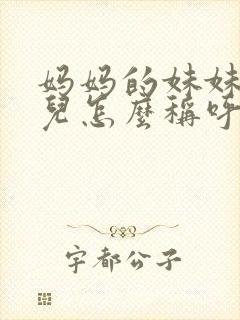 妈妈的妹妹
兒怎麼稱呼
宇都公子